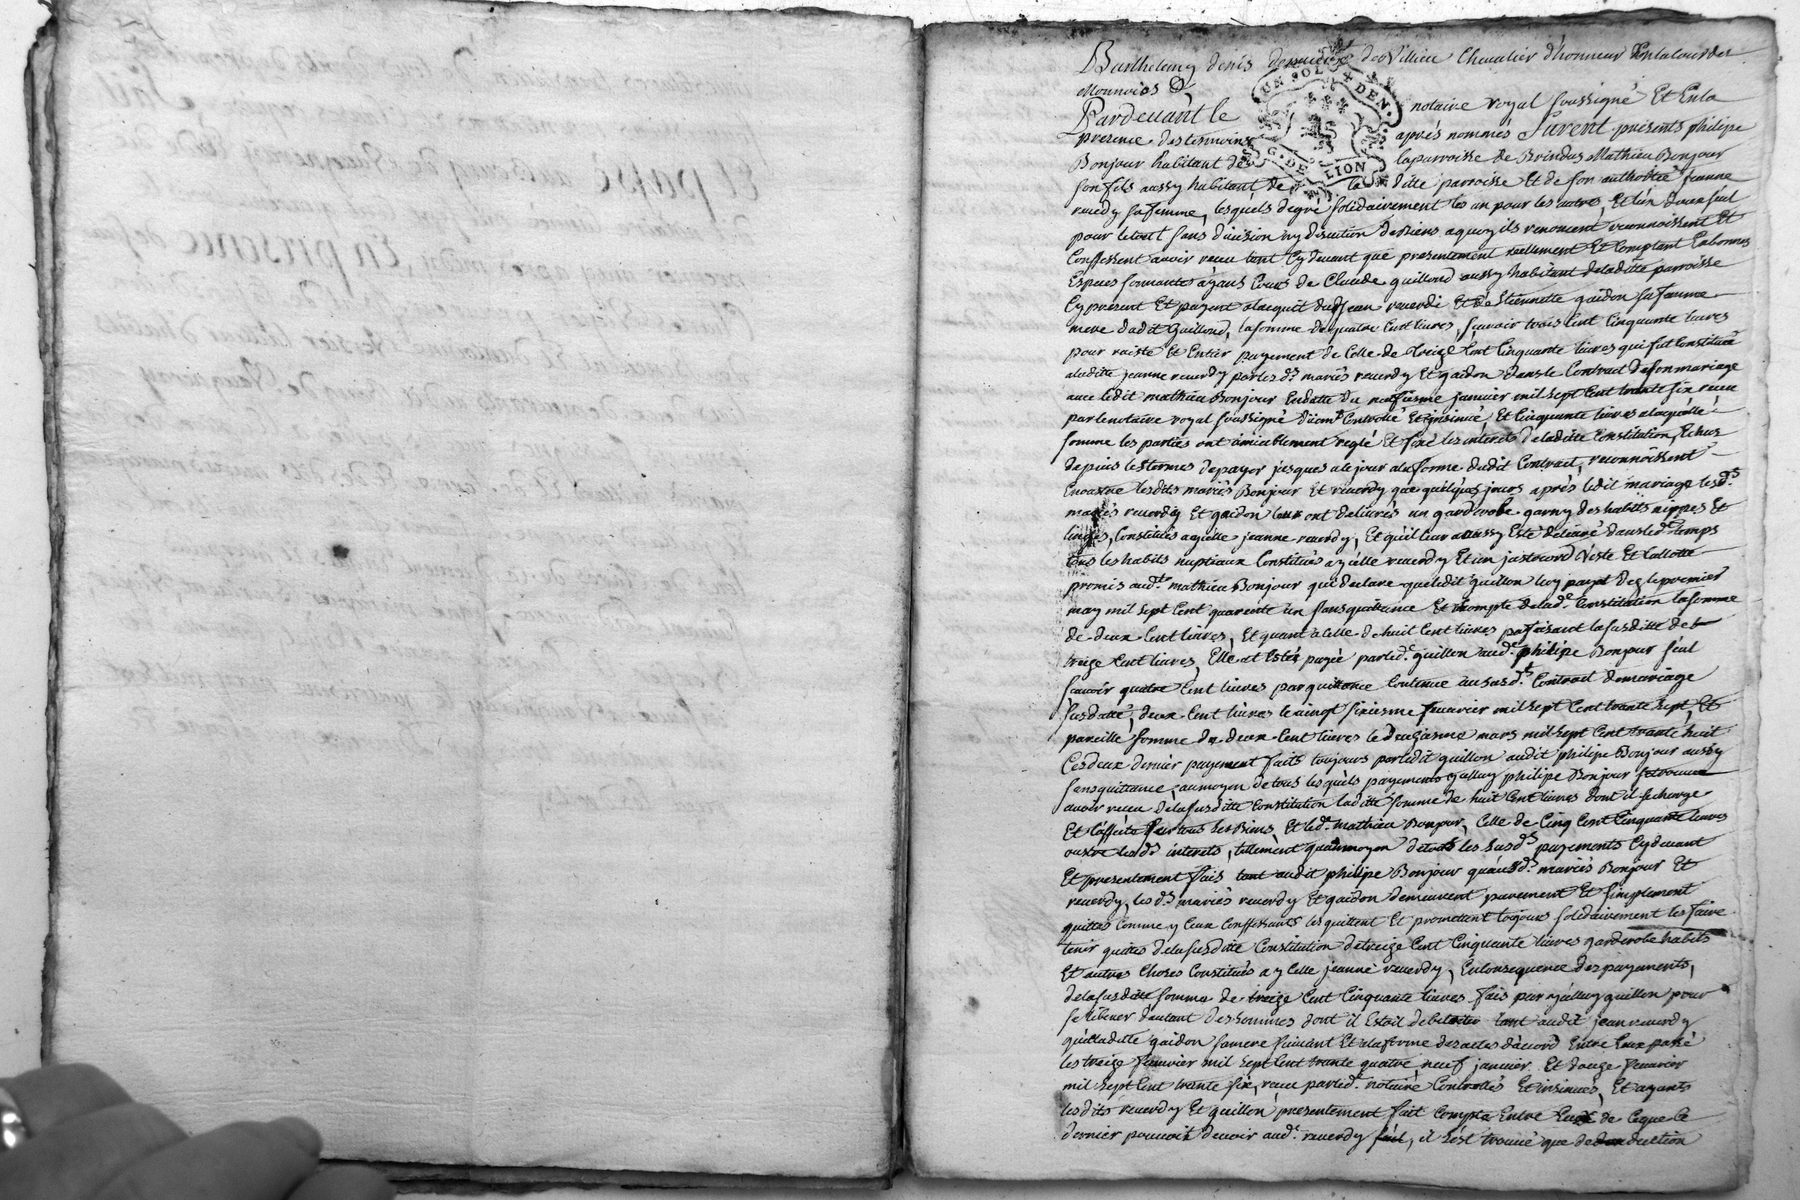 Barthelemy denis de de Villieu Chevalier d'honneur En la Cour des
Monnoies &
Pardevant le notaire royal soussigné Et En la
presence des temoins aprés nommés Furent presents philipe
Bonjour habitant de la parroisse de Brindas Mathieu Bonjour
son fils aussy habitant de la ditte parroisse Et de son authorité jeanne
reverdy sa femme, lesquels de gré solidairement les un pour les autres, Et l'un d'eux seul
pour le tout sans division ny discution de biens a quoy ils renoncent reconnoissent Et
Confessent avoir receu tant Cy devant que presentement reellement Et Comptant En bonnes
Especes sonnantes ayans Cours de Claude guillond aussy habitant de la ditte parroisse
Cy present Et payant a l'acquit de jean reverdi Et de Etiennette gaidon sa femme
mere dudit Guillond, la somme de quatre Cent livres, sçavoir trois Cent Cinquante livres
pour reiste Et Entier payement de Celle de treize Cent Cinquante livres qui fut Constituée
a laditte jeanne reverdy par les ds. mariés reverdy Et gaidon dans le Contract de son mariage
avec ledit mathieu Bonjour En datte du janvier mil sept Cent trante six receu
par le notaire royal soussigné Controllé Et insinué, Et Cinquante livres a laquelle
somme les parties ont amiablement reglé Et fixé les interets de laditte Constitution Echus
depuis les termes de payer jusques a ce jour a la forme dudit Contract, reconnoissent
En outre lesdits mariés Bonjour Et reverdy que quelques jours aprés ledit mariage les ds.
mariés reverdy Et gaidon leur ont delivrés un garderobe garny des habits nippes Et
linges, Constitués a ycelle jeanne reverdy, Et qu'il leur a aussy Esté delivré dans led. temps
tous les habits nuptiaux Constitués a ycelle reverdy Et un justacord veste Et Callotte
promis audt. mathieu Bonjour qui declare que ledit guillon luy paya dez le premier
may mil sept Cent quarente un sans quittance Et a Compte de lad. Constitution la somme
de deux Cent livres, Et quant a Celle de huit Cent livres parfaisant la susditte de
treize Cent livres, Elle at Estés payée par led. guillon aud. philipe Bonjour seul
sçavoir quatre Cent livres par quittance Contenue au susdt. Contract de mariage
susdatté, deux Cent livres le vingt sixiesme fevrier mil sept Cent trante sept, Et
pareille somme de deux Cent livres le deuziesme mars mil sept Cent trante huit
Ces deux dernier payement faits toujours par ledit guillon audit philipe Bonjour aussy
sans quittance, au moyen de tous lesquels payements yCelluy philipe Bonjour se trouve
avoir receu de la susditte Constitution laditte somme de huit Cent livres dont il se charge
Et l'affecte sur tous ses Biens, Et led. mathieu Bonjour, Celle de Cinq Cent Cinquante livres
outre lesds. interets, tellement qu'au moyen de tous les susds. payements Cy devant
Et presentement fais tant audit philipe Bonjour qu'ausds. mariés Bonjour Et
reverdy, les ds. mariés reverdy Et gaidon demeurent purement Et simplement
quittes Comme yCeux Confessants les quittent Et promettent toujours solidairement les faire
tenir quittes de la susditte Constitution de treize Cent Cinquante livres garderobe habits
Et autres Choses Constitués a yCelle jeanne reverdy, En Consequence des payements,
de la susditte somme de treize Cent Cinquante livres fais par yCelluy guillon pour
se liberer d'autant des sommes dont il Estoit debiteur tant audit jean reverdy
qu'a laditte gaidon sa mere suivant Et a la forme des actes d'accord Entre Eux passé
les treize fevrier mil sept Cent trante quatre, neuf janvier Et douze fevrier
mil sept Cent trante six, receu par led. notaire Controllés Et insinués, Et ayants
lesdits reverdy Et guillon, presentement fait Compte Entre Eux de Ce que Ce
dernier pouvoit devoir aud. reverdy seul, il s'est trouvé que deduction
UN SOL + DEN.
G. DE LION